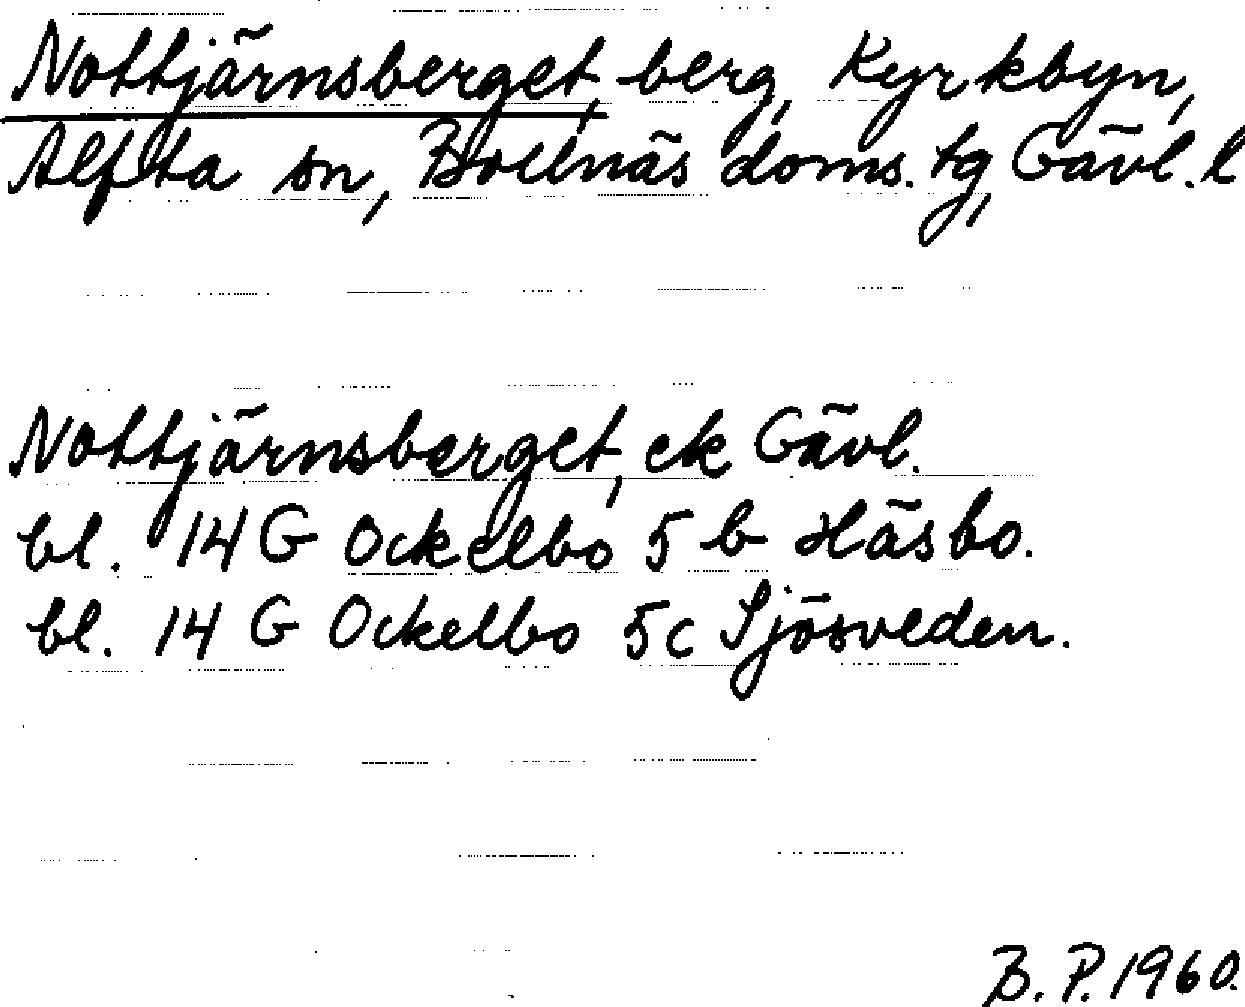 Nottjärnsberget, berg, Kyrkbyn,
Alfta sn, Bollnäs doms. tg, Gävl. l
Nottjärnsberget, ek Gävl.
bl. 14 G Ockelbo 5 b Häsbo.
bl. 14 G Ockelbo 5c Sjösveden.
B. P. 1960.